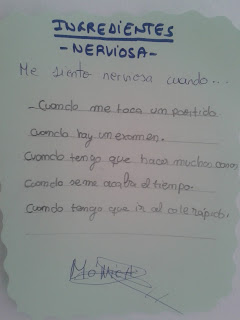 INGREDIENTES
- NERVIOSA -
Me siento nerviosa cuando...
- Cuando me toca un partido
Cuando hay un examen.
Cuando tengo que hacer muchas cosas
Cuando se me acaba el tiempo.
Cuando tengo que ir al cole rápido.